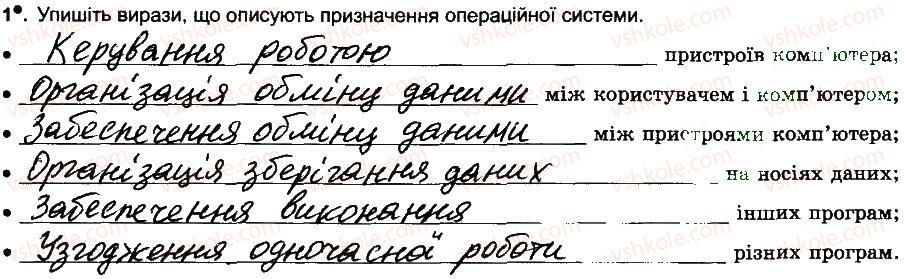 1•. Упишіть вирази, що описують призначення операційної системи.
• Керування роботою пристроїв комп'ютера;
• Організація обміну даними між користувачем і комп'ютером;
• Забеспечення обміну даними між пристроями комп'ютера;
• Організація зберігання даних на носіях даних;
• Забеспечення виконання інших програм;
• Узгодження одночасної роботи різних програм.